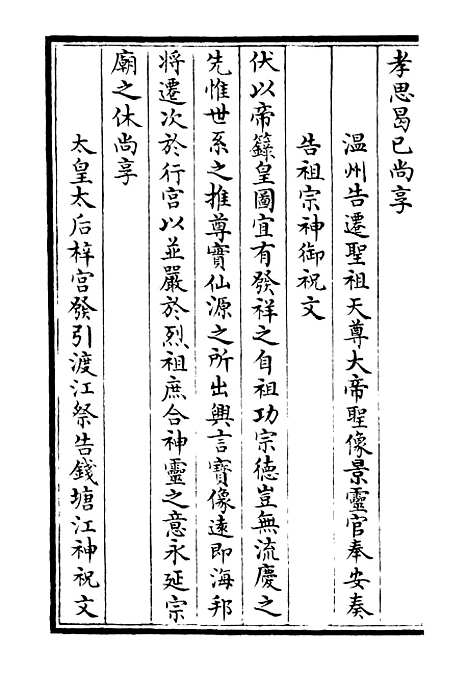 孝思曷已尚享
溫州告遷聖祖天尊大帝聖像景靈宫奉安奏
告祖宗神御祝文
伏以帝籙皇圖宜有發祥之自祖功宗德豈無流慶之
先惟世系之推尊實仙源之所出興言寶像遠即海邦
將遷次於行宫以並嚴於烈祖庶合神靈之意永延宗
廟之休尚享
太皇太后梓宫發引渡江祭告錢塘江神祝文